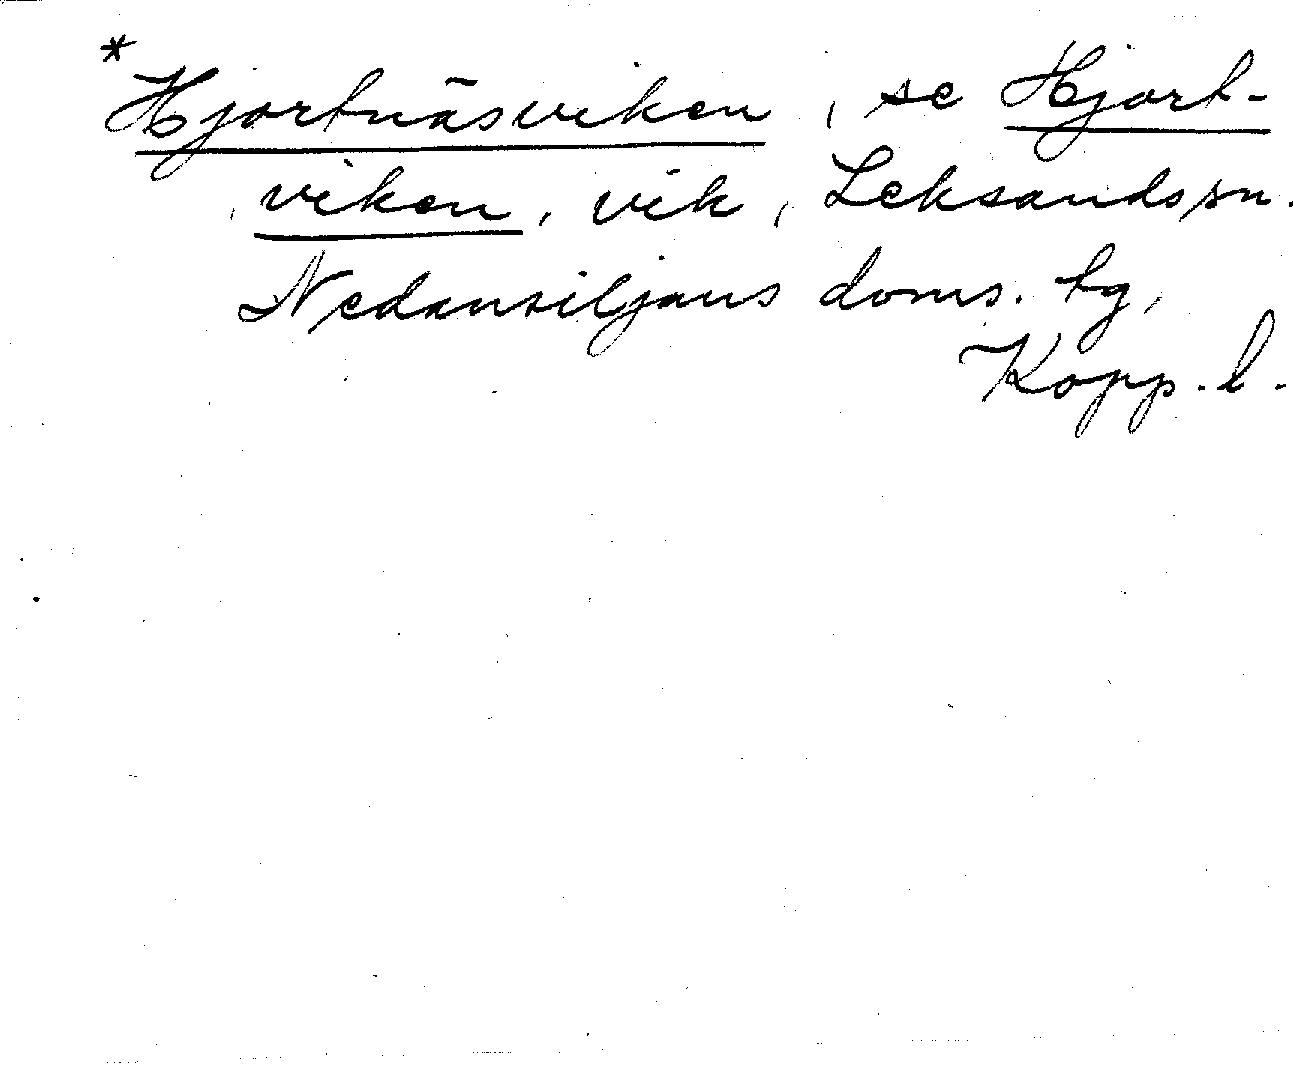 * Hjortnäsviken, se Hjort-
viken, vik, Leksands sn.
Nedansiljans doms. tg,
Kopp. l.